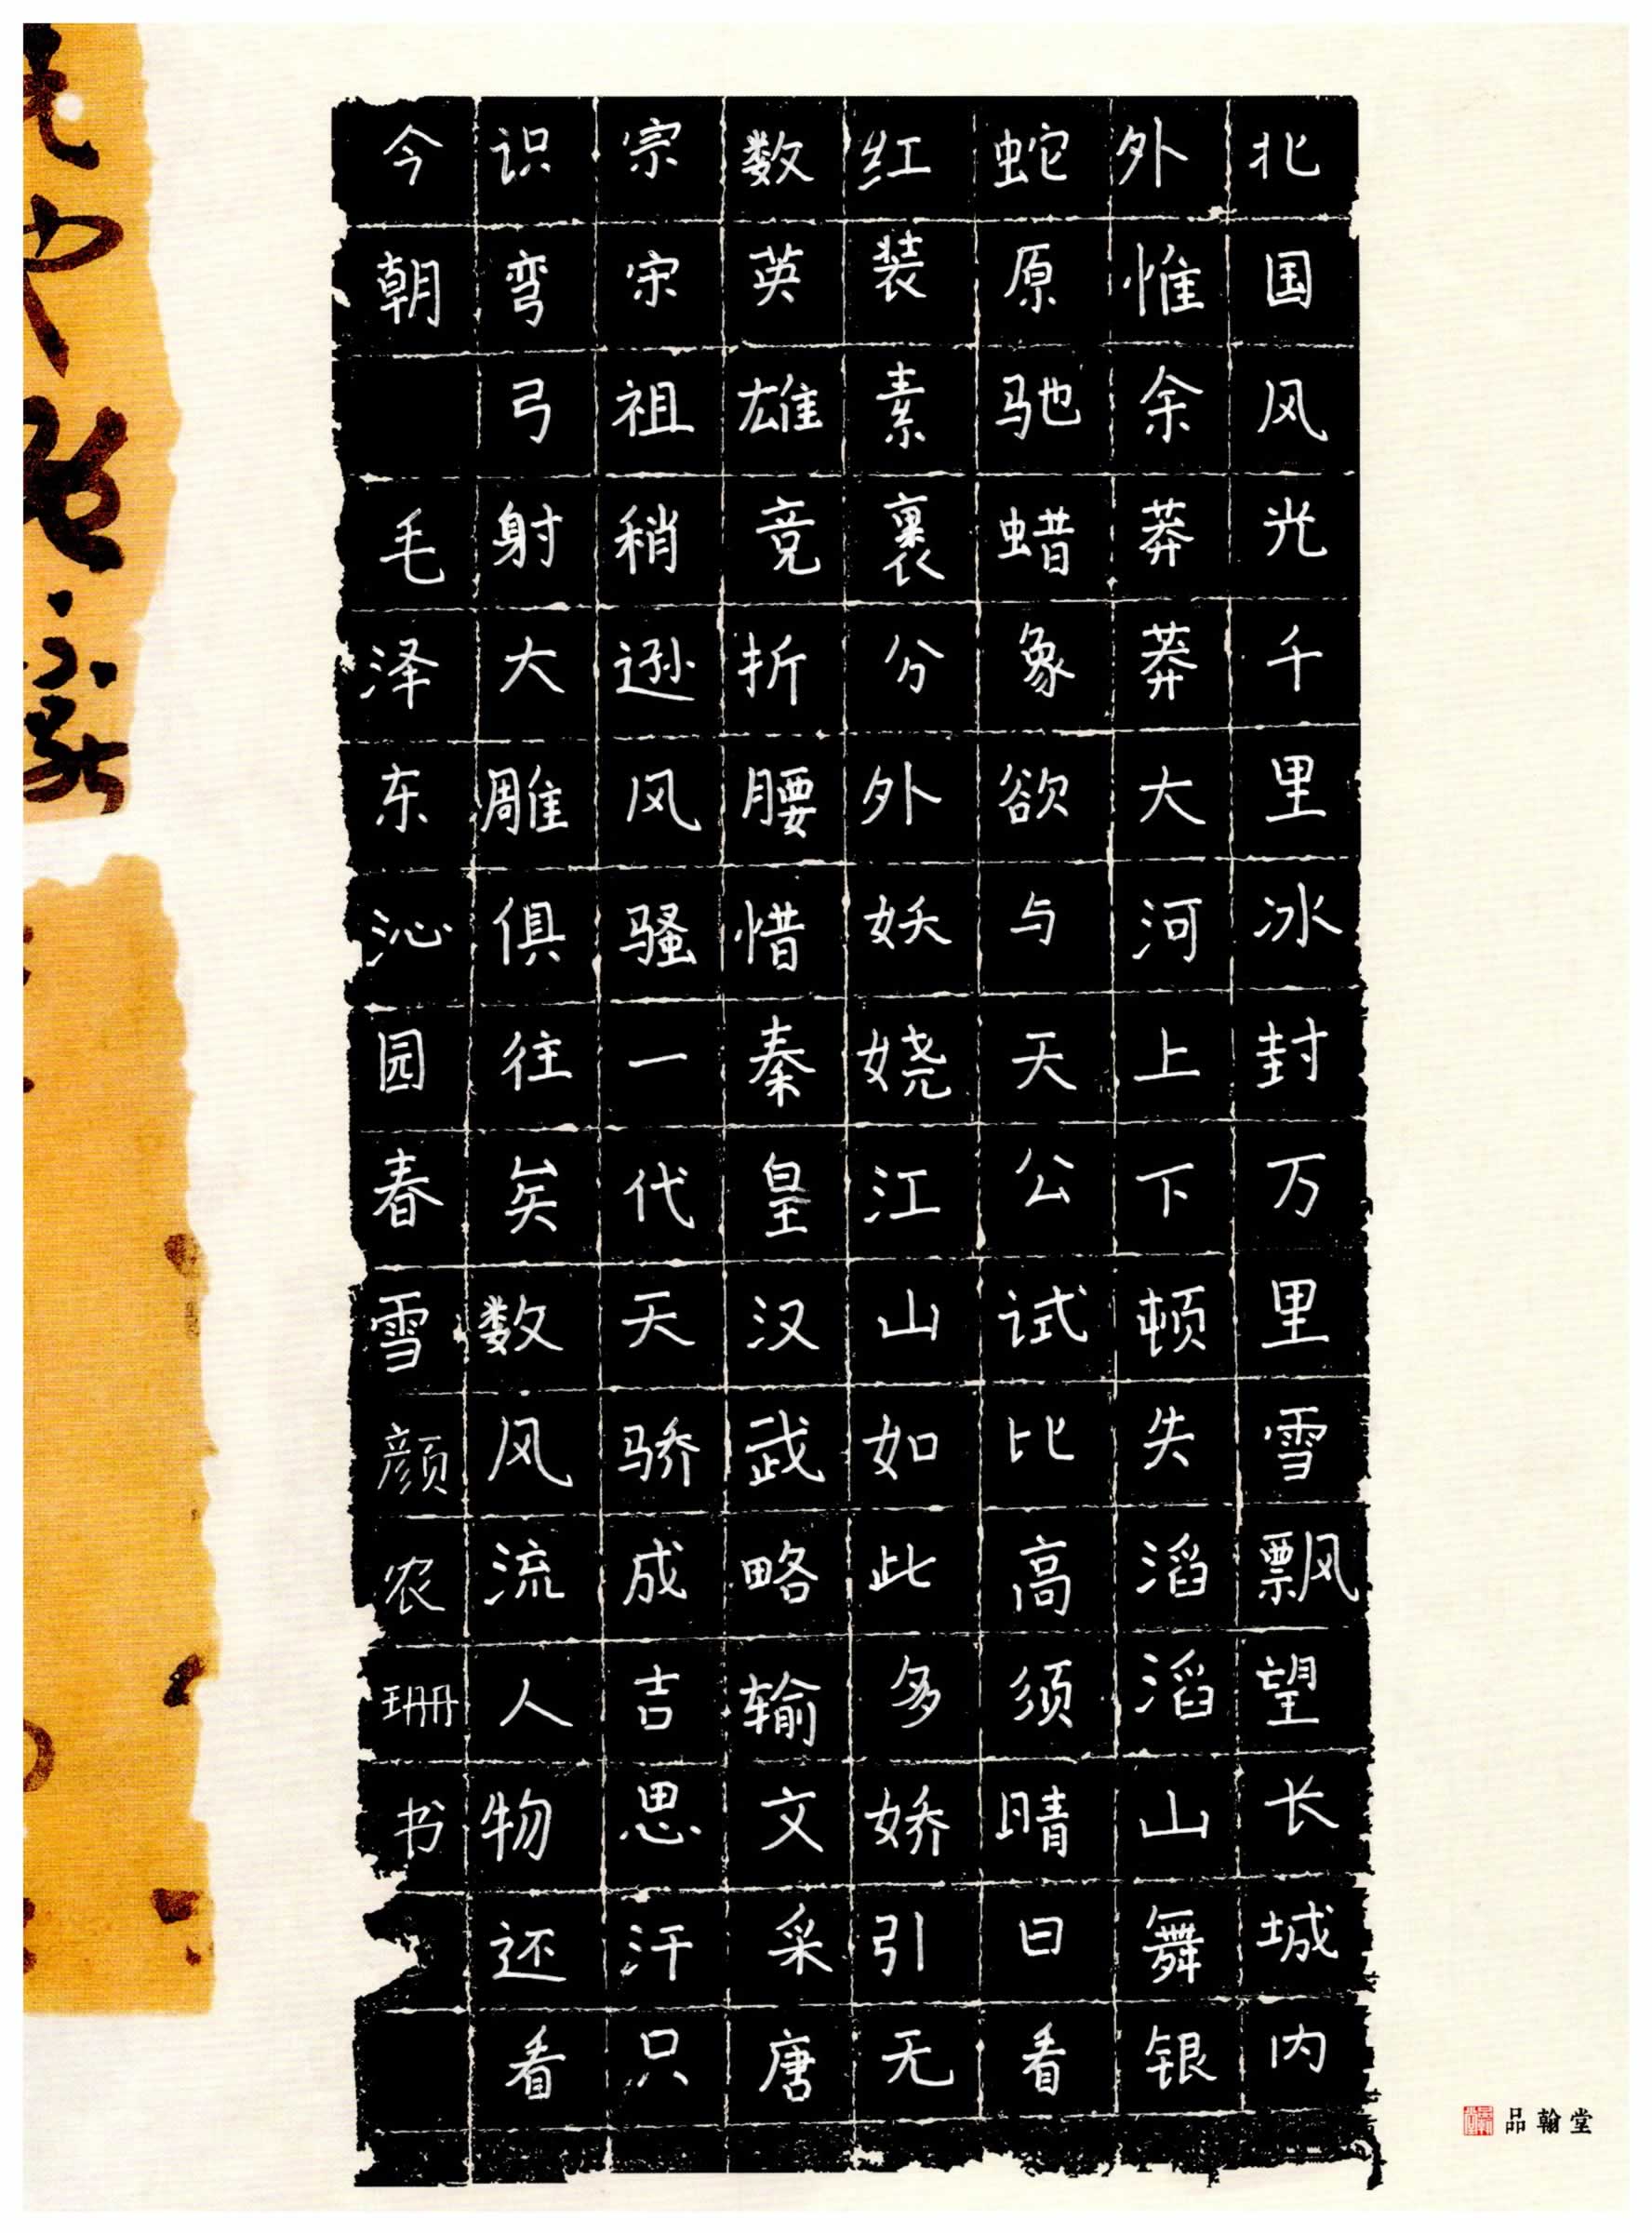 北国风光千里冰封万里雪飘望长城内
外惟余莽莽大河上下顿失滔滔山舞银
蛇原驰蜡象欲与天公试比高须晴日看
红装素裹分外妖娆江山如此多娇引无
数英雄竞折腰惜秦皇汉武略输文采唐
宗宋祖稍逊风骚一代天骄成吉思汗只
识弯弓射大雕俱往矣数风流人物还看
今朝 毛泽东沁园春雪颜农珊书
品翰堂